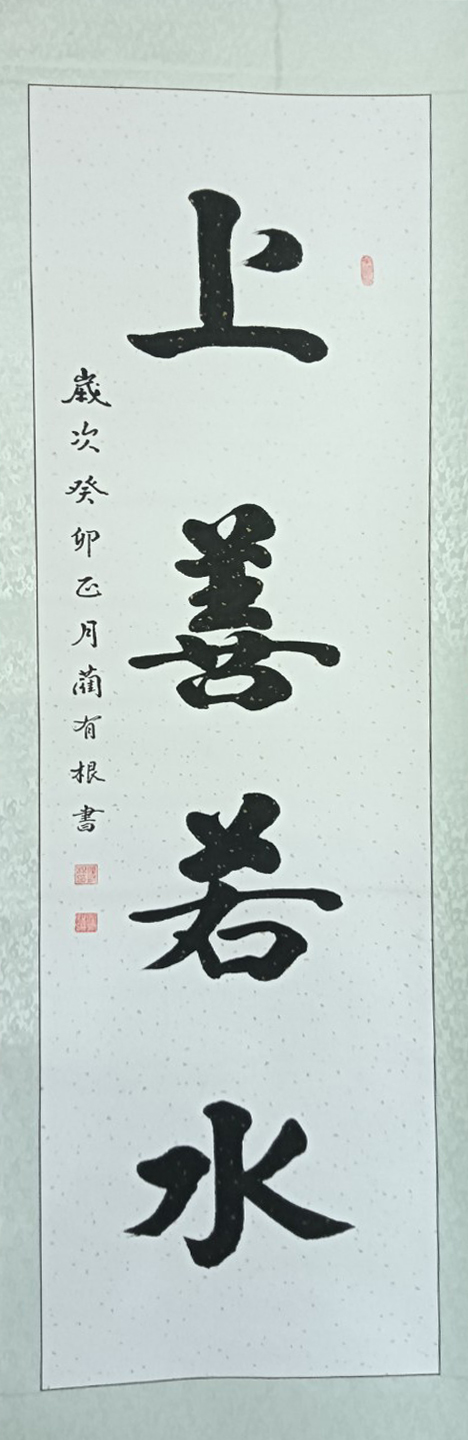 上善若水
歲次癸卯正月蔺有根書